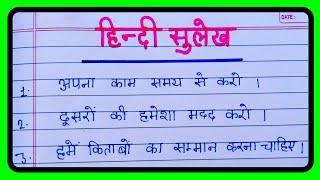 DATE:
हिन्दी सुलेख
1. अपना काम समय से करो ।
2. दूसरों की हमेशा मदद करो ।
3. हमें किताबों का सम्मान करना चाहिए ।